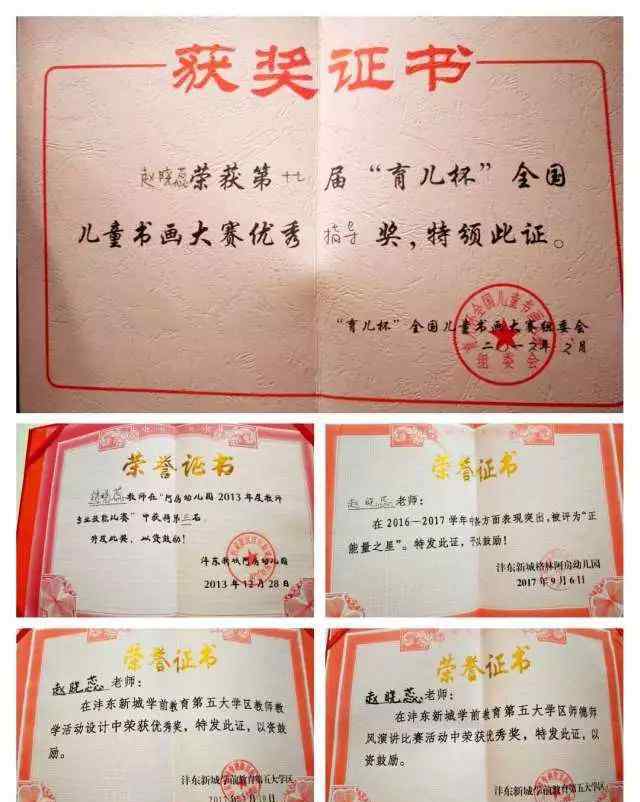 获奖证书
赵晓蕊荣获第十七届“育儿杯”全国
儿童书画大赛优秀指导奖，特颁此证。
“育儿杯”全国儿童书画大赛组委会
组委会
荣誉证书
教师在“阿房幼儿园2013年度教师
专业技能比赛”中获得第三名
颁发此奖，以资鼓励！
沣东新城阿房幼儿园
2013年12月28日
荣誉证书
赵晓蕊老师：
在2016-2017学年中各方面表现突出，被评为“正
能量之星”。特发此证，予以鼓励！
沣东新城格林阿房幼儿园
2017年9月6日
荣誉证书
赵晓蕊老师：
在沣东新城学前教育第五大学区教师教
学活动设计中荣获优秀奖，特发此证，以资鼓
励。
沣东新城学前教育第五大学区
荣誉证书
赵晓蕊老师：
在沣东新城学前教育第五大学区师德师
风演讲比赛活动中荣获优秀奖，特发此证，以
资鼓励。
沣东新城学前教育第五大学区